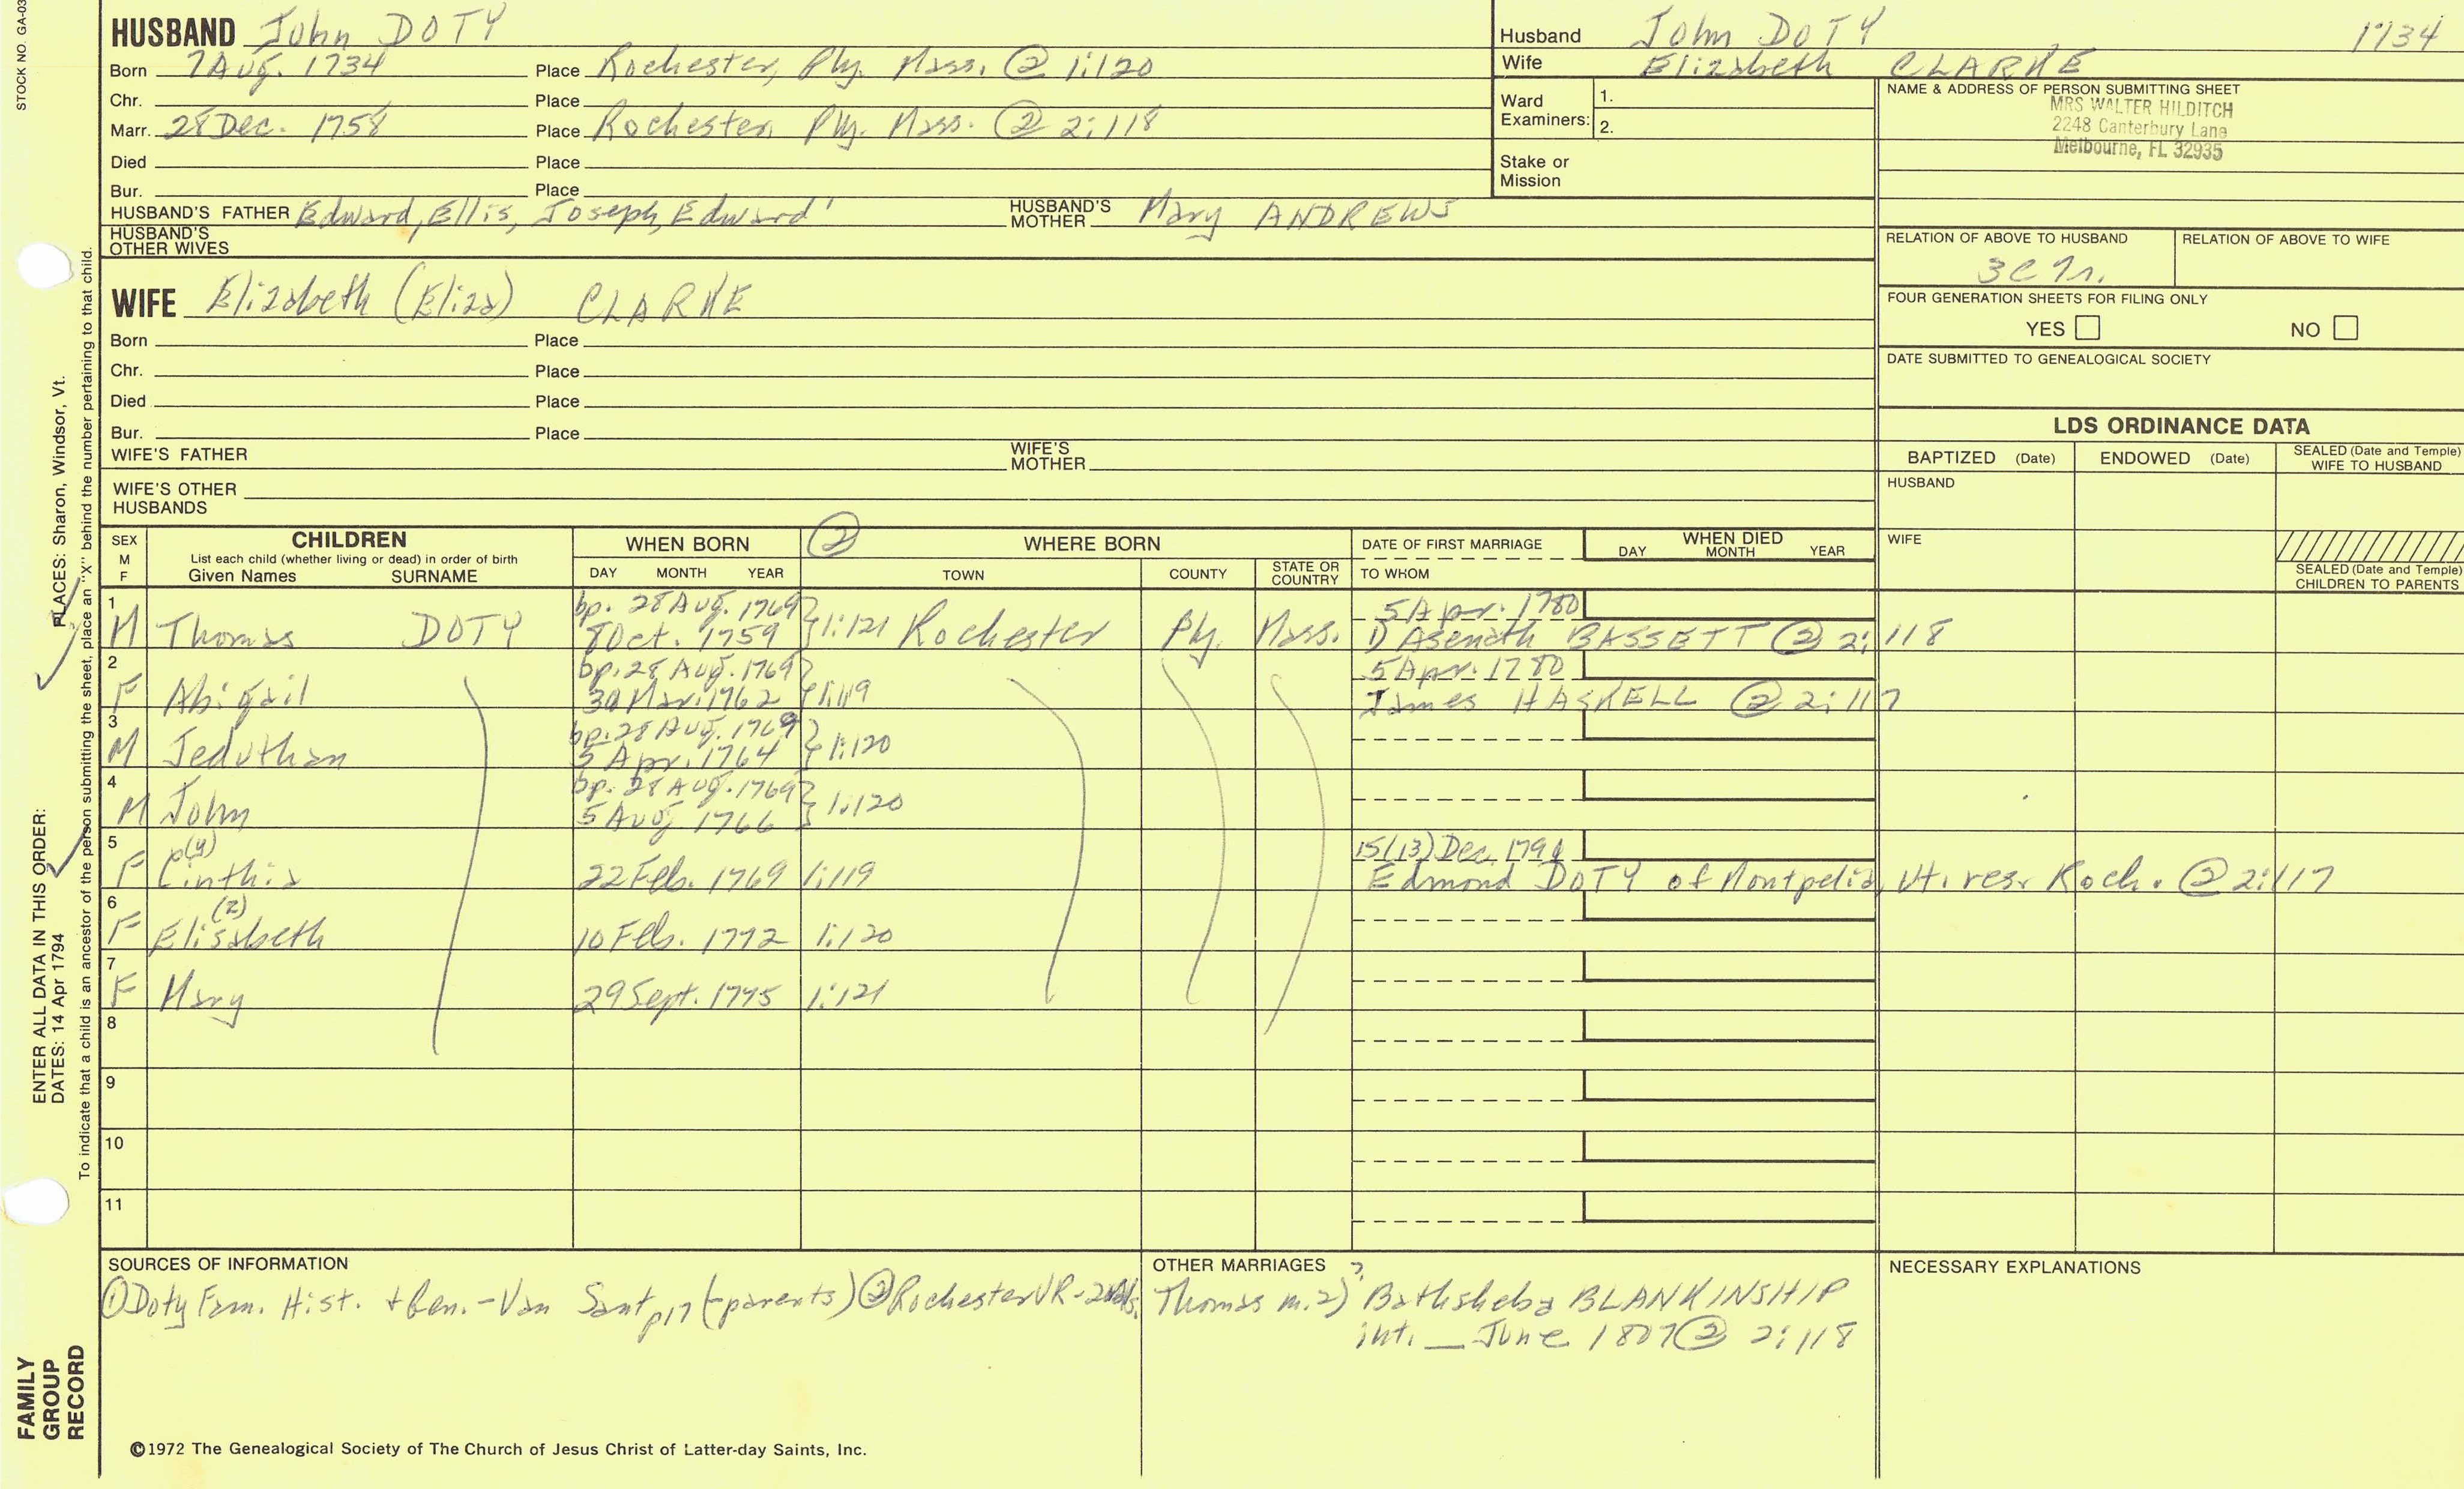 STOCK NO. GA-03
HUSBAND John DOTY
Born 7 Aug. 1734 Place Rochester, Ply. Mass. @ 1:120
Chr. Place
Marr. 28 Dec. 1758 Place Rochester, Ply. Mass. ② 2:118
Died Place
Bur. Place
HUSBAND'S FATHER Edward, Ellis, Joseph, Edward' HUSBAND'S MOTHER Mary ANDREWS
HUSBAND'S OTHER WIVES
Husband John DOTY 1734
Wife Elizabeth CLARKE
Ward Examiners: 1.
2.
Stake or Mission
NAME & ADDRESS OF PERSON SUBMITTING SHEET
MRS WALTER HILDITCH
2248 Canterbury Lane
Melbourne, FL 32935
RELATION OF ABOVE TO HUSBAND RELATION OF ABOVE TO WIFE
3C 7r.
FOUR GENERATION SHEETS FOR FILING ONLY
YES NO
DATE SUBMITTED TO GENEALOGICAL SOCIETY
WIFE Elizabeth (Eliza) CLARKE
Born Place
Chr. Place
Died Place
Bur. Place
WIFE'S FATHER WIFE'S MOTHER
WIFE'S OTHER HUSBANDS
LDS ORDINANCE DATA
BAPTIZED (Date) ENDOWED (Date) SEALED (Date and Temple) WIFE TO HUSBAND
HUSBAND
WIFE
SEALED (Date and Temple) CHILDREN TO PARENTS
SEX M F
CHILDREN
List each child (whether living or dead) in order of birth
Given Names SURNAME
WHEN BORN
DAY MONTH YEAR
② WHERE BORN
TOWN COUNTY STATE OR COUNTRY
DATE OF FIRST MARRIAGE
TO WHOM
WHEN DIED
DAY MONTH YEAR
1 bp. 28 Aug. 1769 5 Apr. 1780
M Thomas DOTY 8 Oct. 1759 } 1:121 Rochester Ply. Mass. 1) Asenath BASSETT ② 2:118
2 bp. 28 Aug. 1769 5 Apr. 1780
F Abigail 30 Mar. 1762 } 1:119 James HASKELL ② 2:117
3 bp. 28 Aug. 1769
M Jeduthan 5 Apr. 1764 } 1:120
4 bp. 28 Aug. 1769
M John 5 Aug. 1766 } 1:120
5 (y) 15(13) Dec. 1791
F Cinthia 22 Feb. 1769 1:119 Edmond DOTY of Montpelia, Vt. res. Roch. ② 2:117
6 (z)
F Elisabeth 10 Feb. 1772 1:120
7
F Mary 29 Sept. 1775 1:121
8
9
10
11
SOURCES OF INFORMATION
① Doty Fam. Hist. + Gen. - Van Sant p17 (-parents) ② Rochester VR - 2 vols.
OTHER MARRIAGES ?
Thomas m. 2) Bathsheba BLANKINSHIP
int. _ June 1807 ② 2:118
NECESSARY EXPLANATIONS
©1972 The Genealogical Society of The Church of Jesus Christ of Latter-day Saints, Inc.
FAMILY GROUP RECORD
ENTER ALL DATA IN THIS ORDER:
DATES: 14 Apr 1794
PLACES: Sharon, Windsor, Vt.
To indicate that a child is an ancestor of the person submitting the sheet, place an "X" behind the number pertaining to that child.